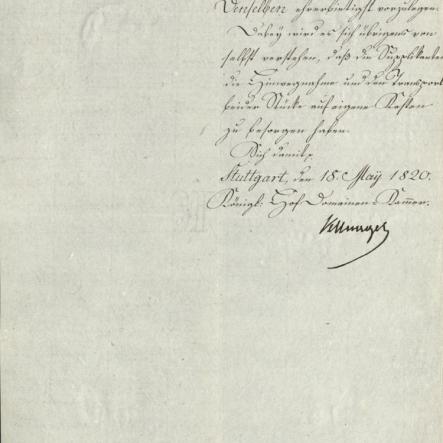 Denselben ehrerbietigst vorzulegen.
Dabey wird es sich übrigens von
selbst verstehen, daß die Supplikanten
die Hinwegnahme und den Transport
beider Stücke auf eigene Kosten
zu besorgen haben.
Sich damit
Stuttgart, den 15. May 1820.
Königl: Hof Domainen Kammer.